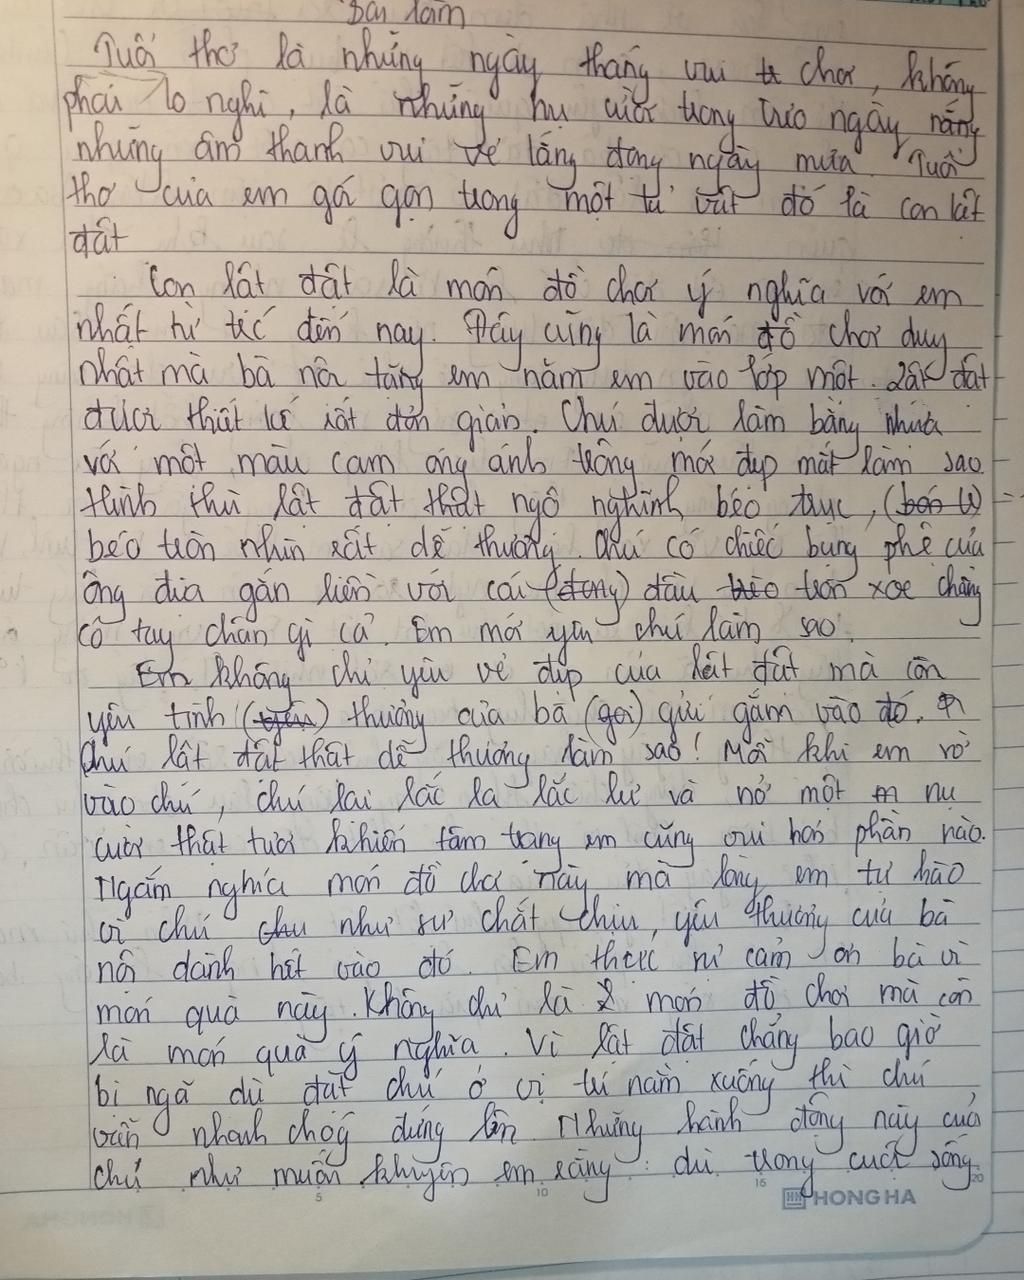 Bài làm
Tuổi thơ là những ngày tháng vui chơi, không
phải lo nghĩ, là những nụ cười trong trẻo ngày nắng
những âm thanh vui vẻ lắng đọng ngày mưa. Tuổi
thơ của em gói gọn trong một từ vật đó là con lật
đật
Con lật đật là món đồ chơi ý nghĩa với em
nhất từ trước đến nay. Đây cũng là món đồ chơi duy
nhất mà bà nội tặng em năm em vào lớp một. Lật đật
được thiết kế rất đơn giản. Chú được làm bằng nhựa
với một màu cam óng ánh trông mới đẹp mắt làm sao.
Hình thù lật đật thật ngộ nghĩnh, béo trục,
béo tròn nhìn rất dễ thương. Chú có chiếc bụng phệ của
ông địa gắn liền với cái đầu tròn xoe chẳng
có tay chân gì cả. Em mới yêu chú làm sao.
Em không chỉ yêu vẻ đẹp của lật đật mà còn
yêu tình thương của bà (gọi) gửi gắm vào đó.
Chú lật đật thật dễ thương làm sao! Mỗi khi em rờ
vào chú, chú lại lắc la lắc lư và nở một nụ
cười thật tươi khiến tâm trạng em cũng vui hơn phần nào.
Ngắm nghía món đồ chơi này mà lòng em tự hào
vì chú như sự chắt chiu, yêu thương của bà
nội dành hết vào đó. Em thực sự cảm ơn bà vì
món quà này. Không chỉ là món đồ chơi mà còn
là món quà ý nghĩa. Vì lật đật chẳng bao giờ
bị ngã dù đặt chú ở vị trí nằm xuống thì chú
vẫn nhanh chóg đứng lên. Những hành động này của
chú như muốn khuyên em rằng: dù trong cuộc sống
5 10 15 20
HH HONG HA